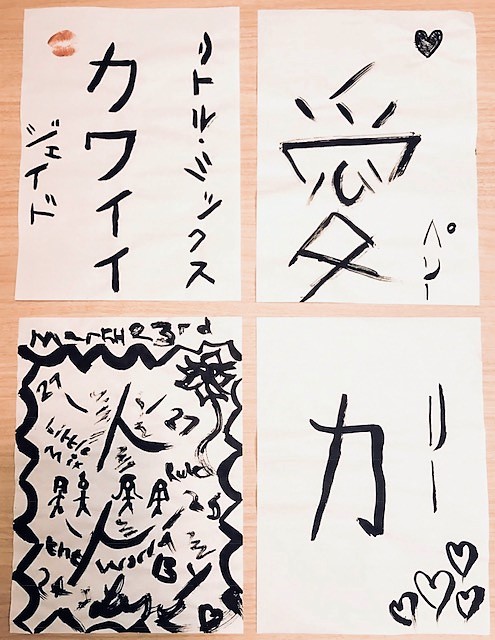 リトル・ミックス
カワイイ
ジェイド
愛
ペリー
March 23rd
27
Little
Mix
Rule
the World
力
リー